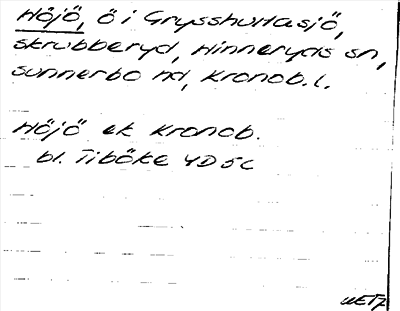 Höjö, ö i Grysshultasjö,
Skrubberyd, Hinneryds sn,
Sunnerbo hd, Kronob. l.
Höjö ek Kronob.
bl. Tiböke 4D5c